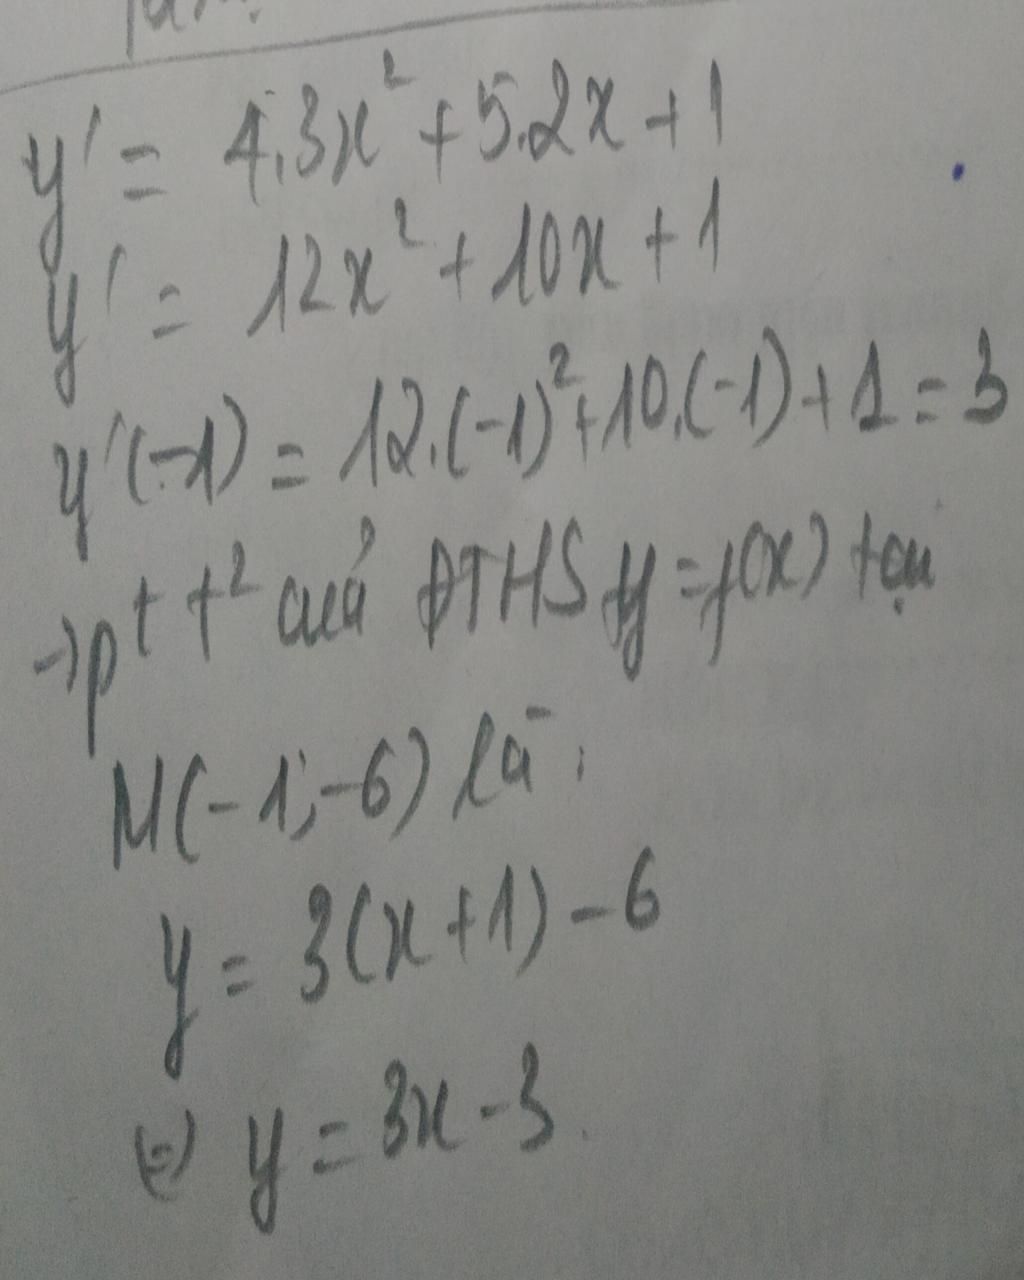 y' = 4.3x² + 5.2x + 1
y' = 12x² + 10x + 1
y'(-1) = 12.(-1)² + 10.(-1) + 1 = 3
→ pt t² của ĐTHS y = f(x) tại
M(-1;-6) là:
y = 3(x+1) - 6
(=) y = 3x - 3